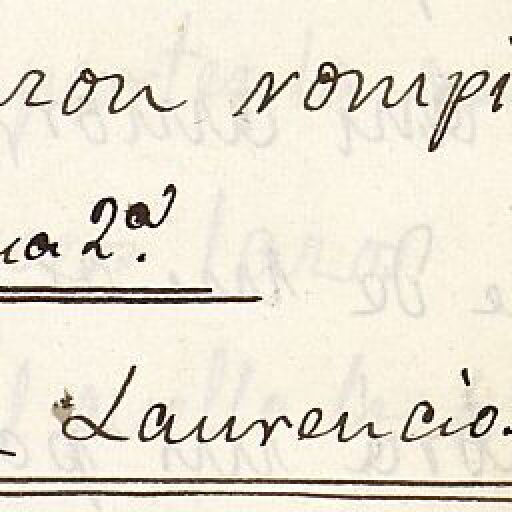 ron rompi
na 2ª.
Laurencio.